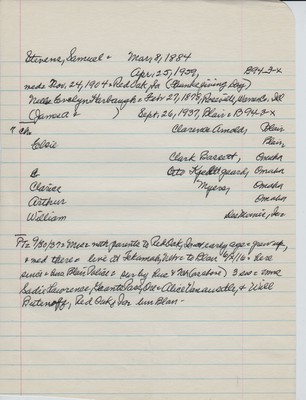 Stevens, Samuel - Mar, 8, 1884
Apr. 25, 1959, B94-3-X
mcd. Nov. 24, 1904 - Red Oak, Ia (Thanksgiving Day)
Nellie Evelyn Harbaugh - Feb 27, 1879, Roseville, Warren Co. Ill
Sept. 26, 1937, Blair - B94-3-X
7 ch.
Clarence Arnold, Blair
Elsie Blair,
Clark Barrett, Omaha
Otto Kjeldgaard, Omaha
Clarice Myers, Omaha
Arthur Omaha
William Des Moines, Ia
9/30/37 - with parents to Red Oak, Iowa, early age - grew up,
- med there - live at Tekamah, Nebr to Blair - here
since - Blair 3 sis - Mmes
Sadie Lawrence, Alice Vanausdle, & Will
Red Oak, Ia - bur Blair -